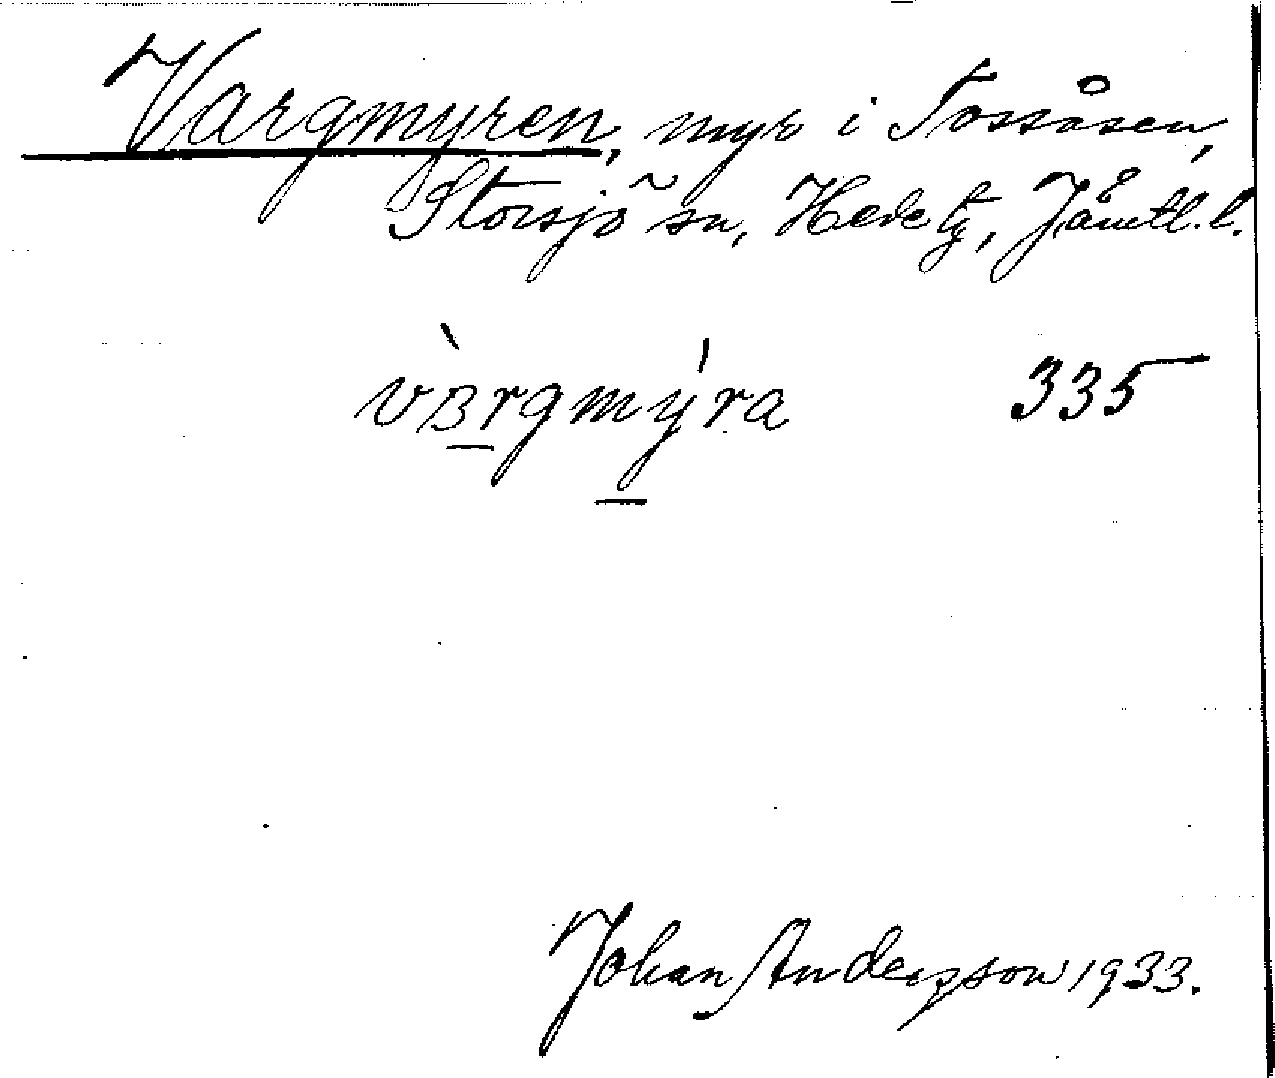 Vargmyren, myr i Tossåsen,
Storsjö sn, Hede tg, Jämtl. l.
vàrgmýra 335
Johan Andersson 1933.